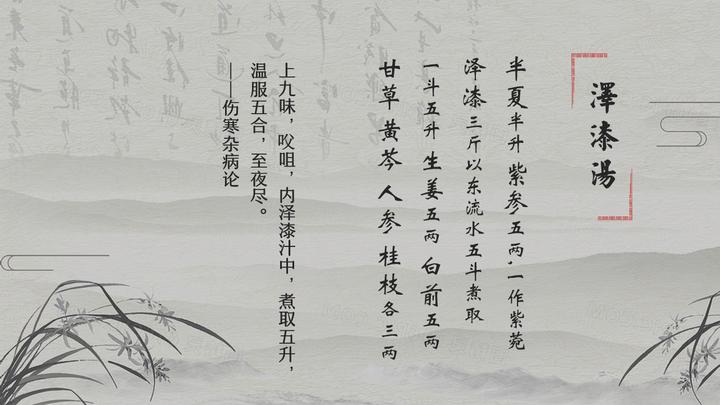 澤漆湯
半夏半升 紫参五两,一作紫菀
泽漆三斤以东流水五斗煮取
一斗五升 生姜五两 白前五两
甘草 黄芩 人参 桂枝各三两
上九味，㕮咀，内泽漆汁中，煮取五升，
温服五合，至夜尽。
——伤寒杂病论